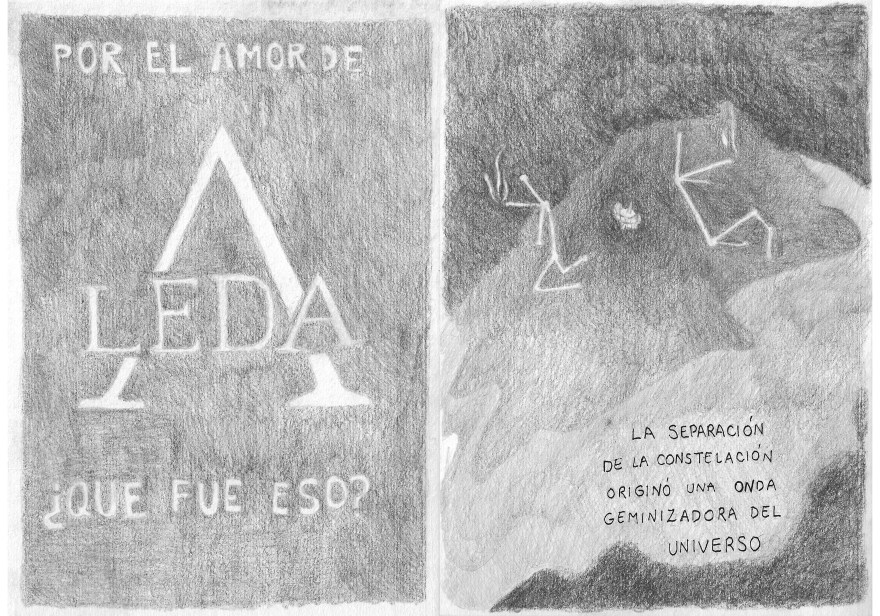 POR EL AMOR DE
A
LEDA
¿QUE FUE ESO?
LA SEPARACIÓN
DE LA CONSTELACIÓN
ORIGINÓ UNA ONDA
GEMINIZADORA DEL
UNIVERSO